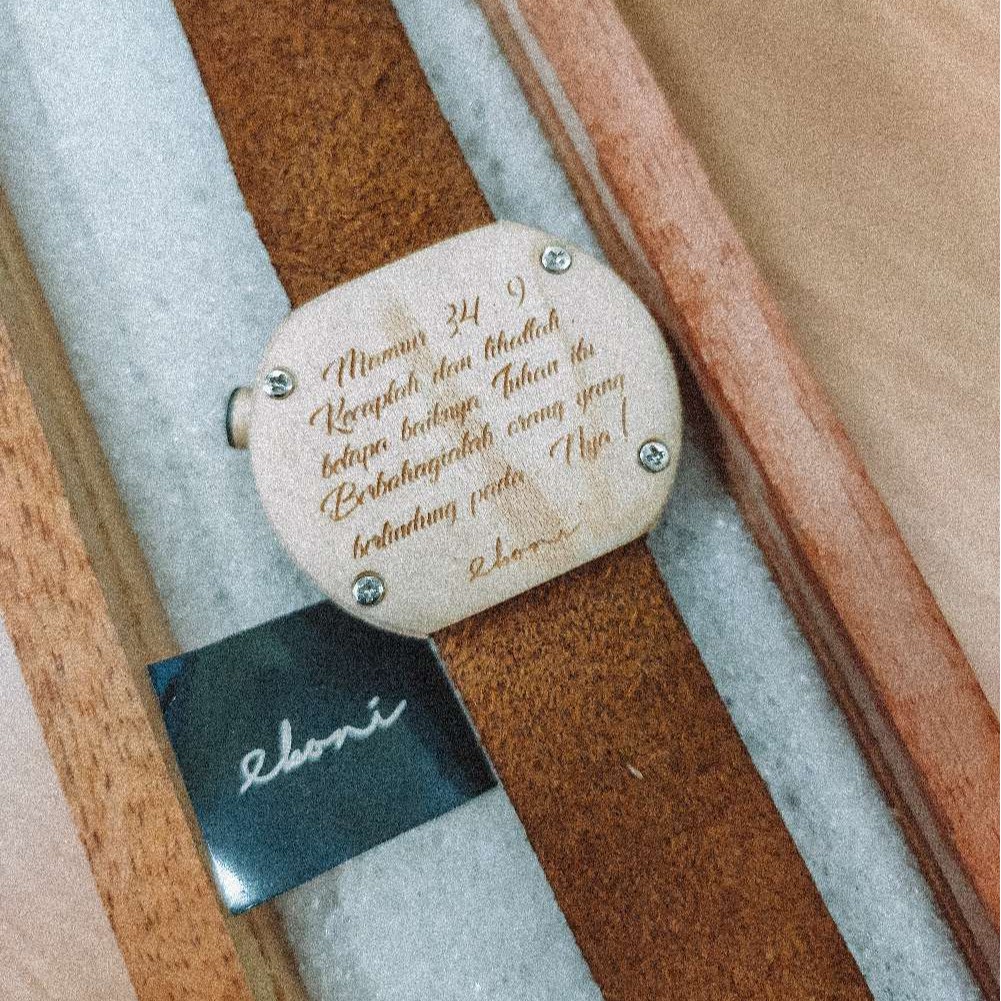 Mazmur 34 : 9
Kecaplah dan lihatlah,
betapa baiknya Tuhan itu.
Berbahagialah orang yang
berlindung pada-Nya!
eboni
eboni